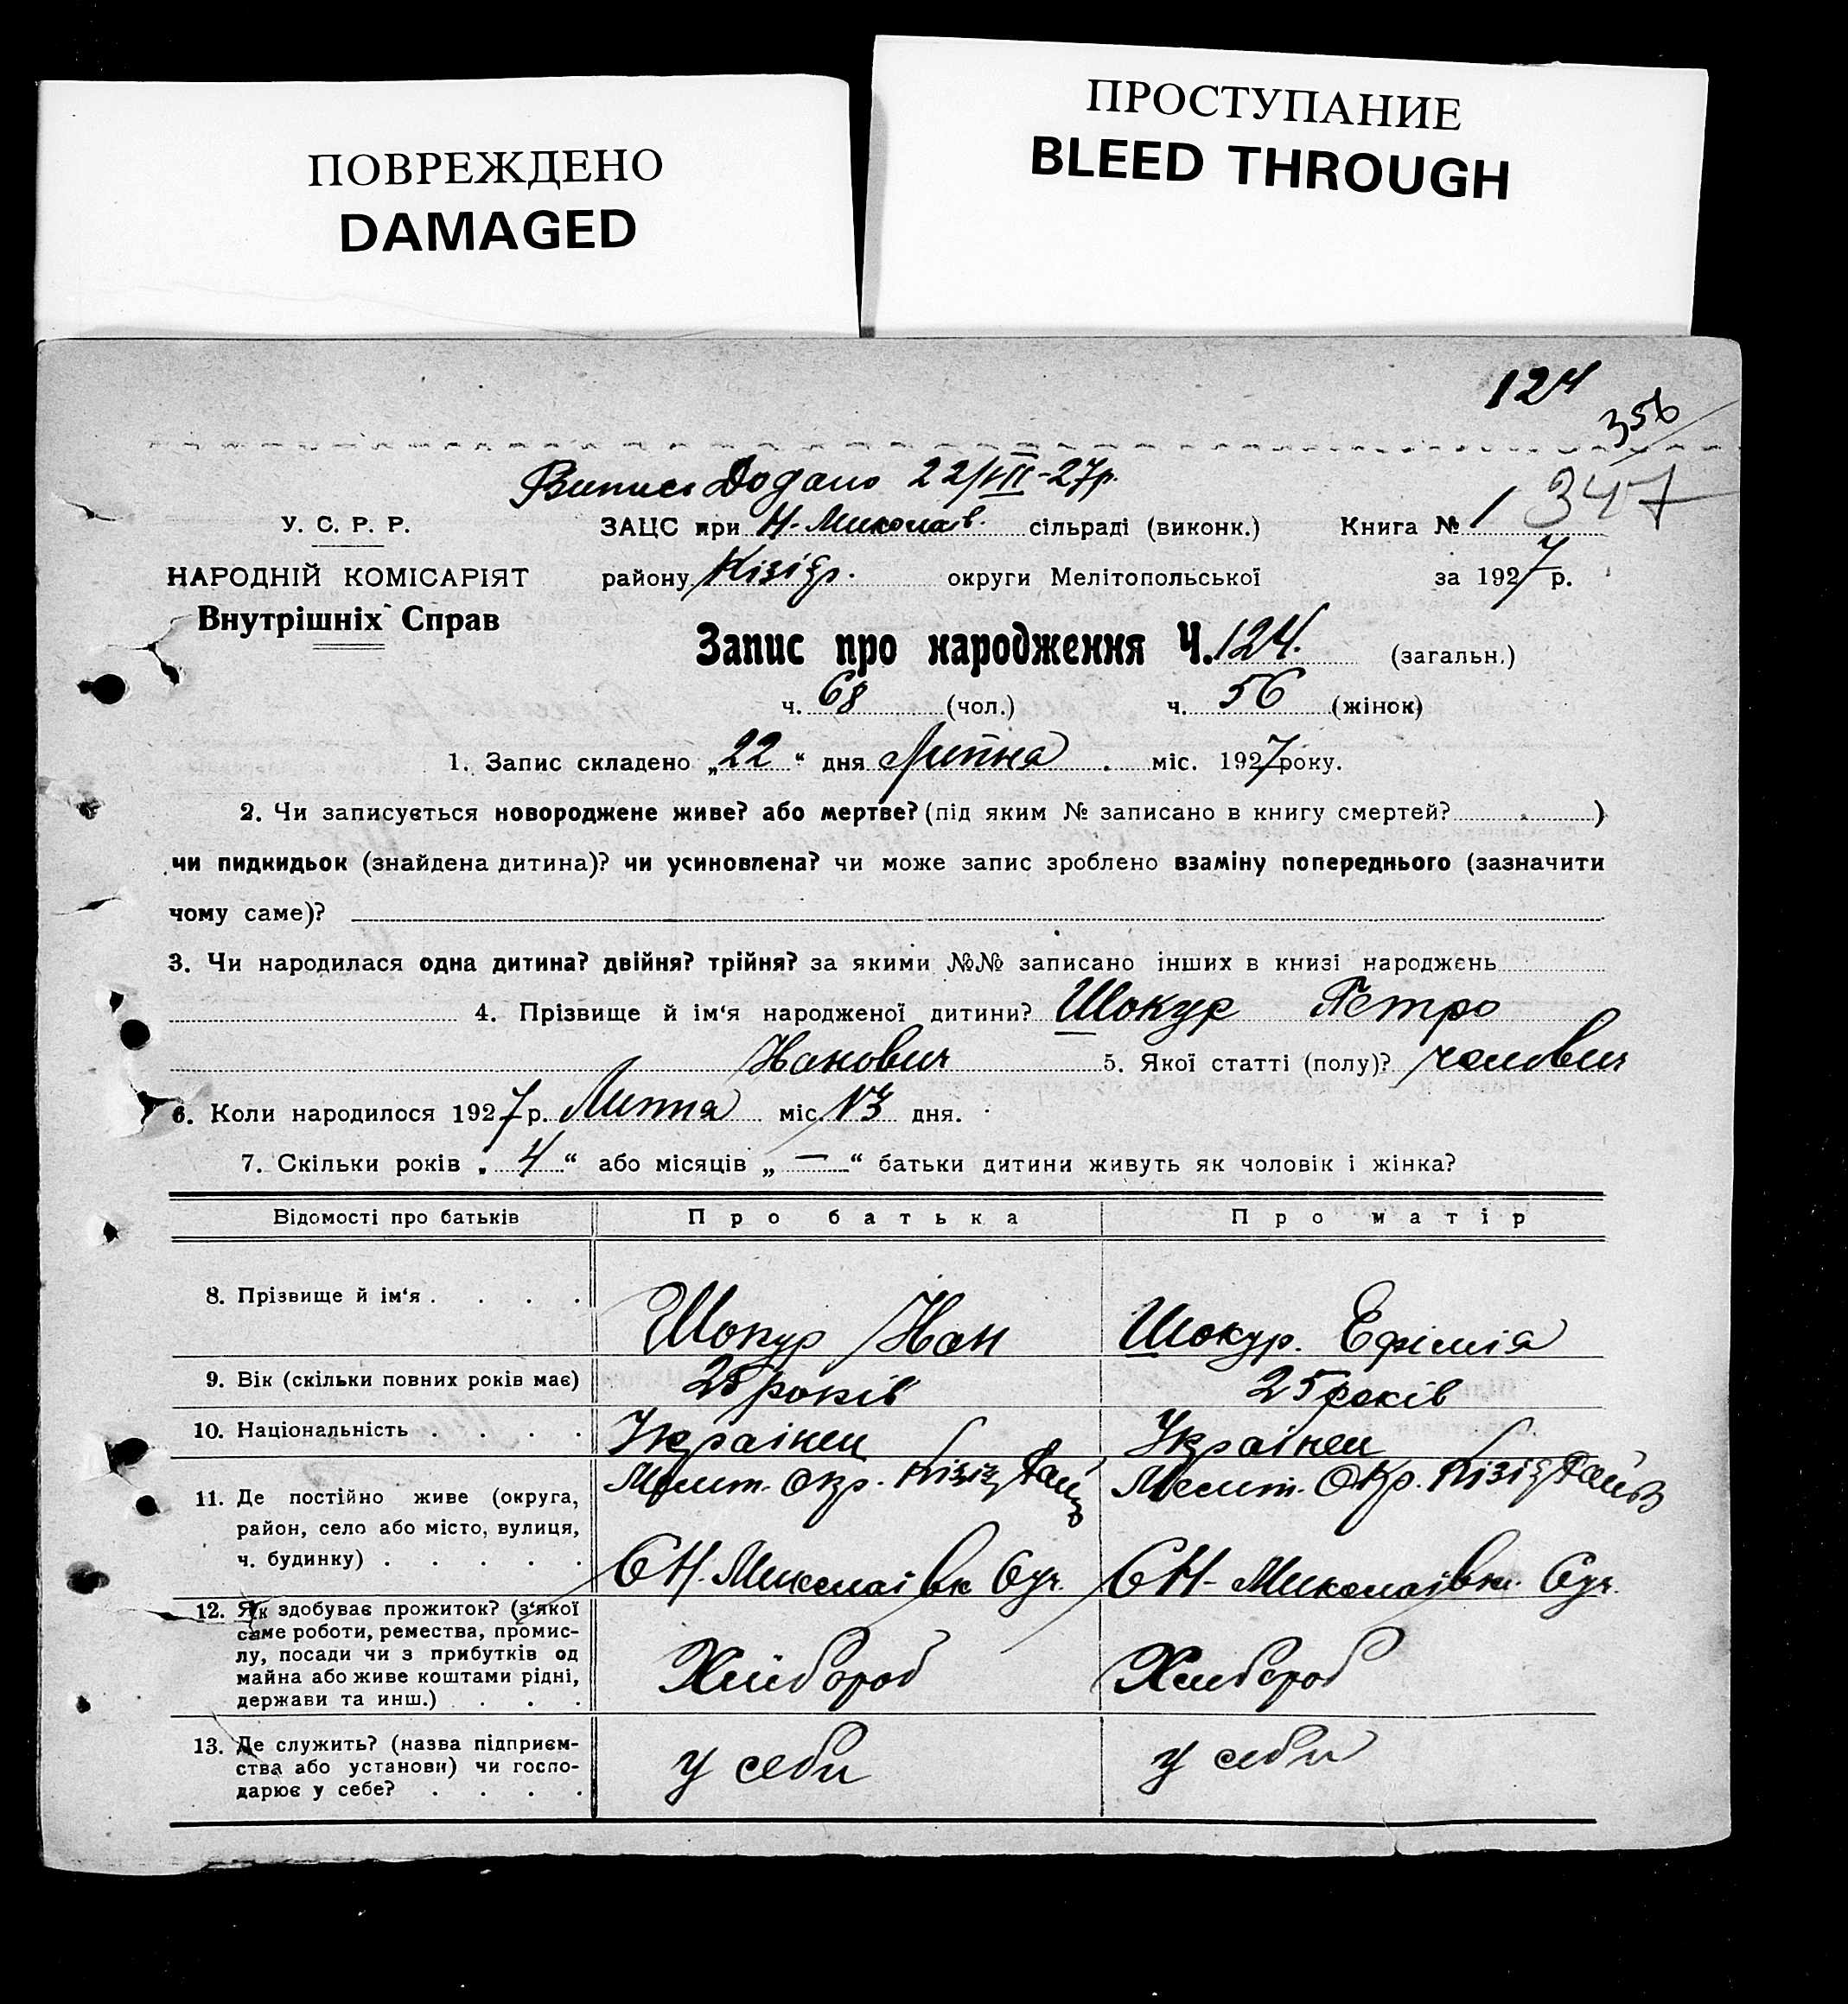 ПОВРЕЖДЕНО
DAMAGED
ПРОСТУПАНИЕ
BLEED THROUGH
124
356
347
Випис Додано 22/VII-27р.
У. С. Р. Р.
НАРОДНІЙ КОМІСАРІЯТ
Внутрішніх Справ
ЗАЦС при Н-Миколаїв. сільраді (виконк.) Книга № 1
району Кізіяр. округи Мелітопольської за 1927 р.
Запис про народження Ч. 124. (загальн.)
ч. 68 (чол.) ч. 56 (жінок)
1. Запис складено „22“ дня Липня міс. 1927 року.
2. Чи записується новороджене живе? або мертве? (під яким № записано в книгу смертей? )
чи пидкидьок (знайдена дитина)? чи усиновлена? чи може запис зроблено взаміну попереднього (зазначити
чому саме)?
3. Чи народилася одна дитина? двійня? трійня? за якими №№ записано інших в книзі народжень
4. Прізвище й ім‘я народженої дитини? Шокур Петро
Иванович 5. Якої статті (полу)? чолович
6. Коли народилося 1927 р. Липня міс. 13 дня.
7. Скільки років „4“ або місяців „—“ батьки дитини живуть як чоловік і жінка?
Відомості про батьків Про батька Про матір
8. Прізвище й ім‘я . . . . Шокур Иван Шокур. Ефімія
9. Вік (скільки повних років має) років 25 років
10. Національність . . . . Українец Українец
11. Де постійно живе (округа, Мелит. Окр. Кізіяр Мелит. Окр. Кізіяр
район, село або місто, вулиця,
ч. будинку) . . . . . С Н. Миколаївк С Н- Миколаївки.
12. Як здобуває прожиток? (з‘якої
саме роботи, ремества, промис-
лу, посади чи з прибутків од Хлибороб Хлибороб
майна або живе коштами рідні,
держави та инш.) . . .
13. Де служить? (назва підприєм-
ства або установи) чи госпо- у себи у себи
дарює у себе? . . . .